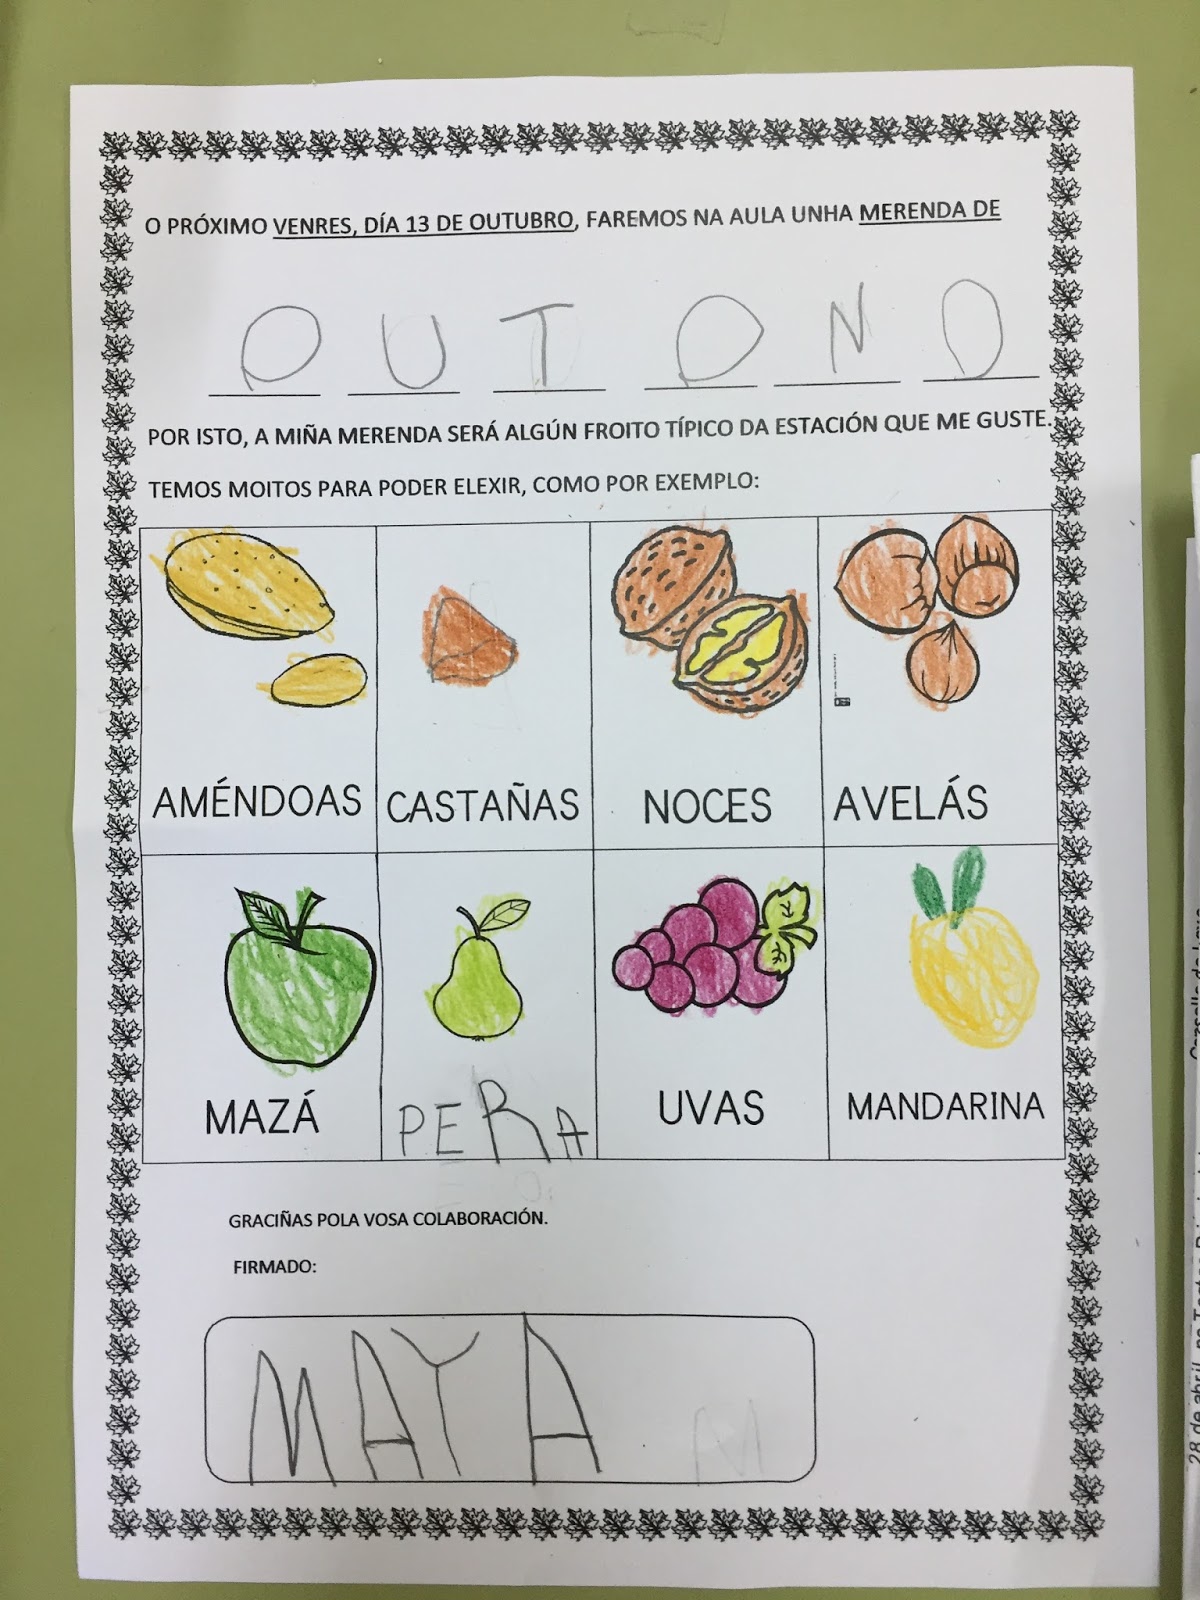 O PRÓXIMO VENRES, DÍA 13 DE OUTUBRO, FAREMOS NA AULA UNHA MERENDA DE
O U T O N O
POR ISTO, A MIÑA MERENDA SERÁ ALGÚN FROITO TÍPICO DA ESTACIÓN QUE ME GUSTE.
TEMOS MOITOS PARA PODER ELEXIR, COMO POR EXEMPLO:
AMÉNDOAS CASTAÑAS NOCES AVELÁS
MAZÁ PERA UVAS MANDARINA
GRACIÑAS POLA VOSA COLABORACIÓN.
FIRMADO:
MAYA M
28 de abril